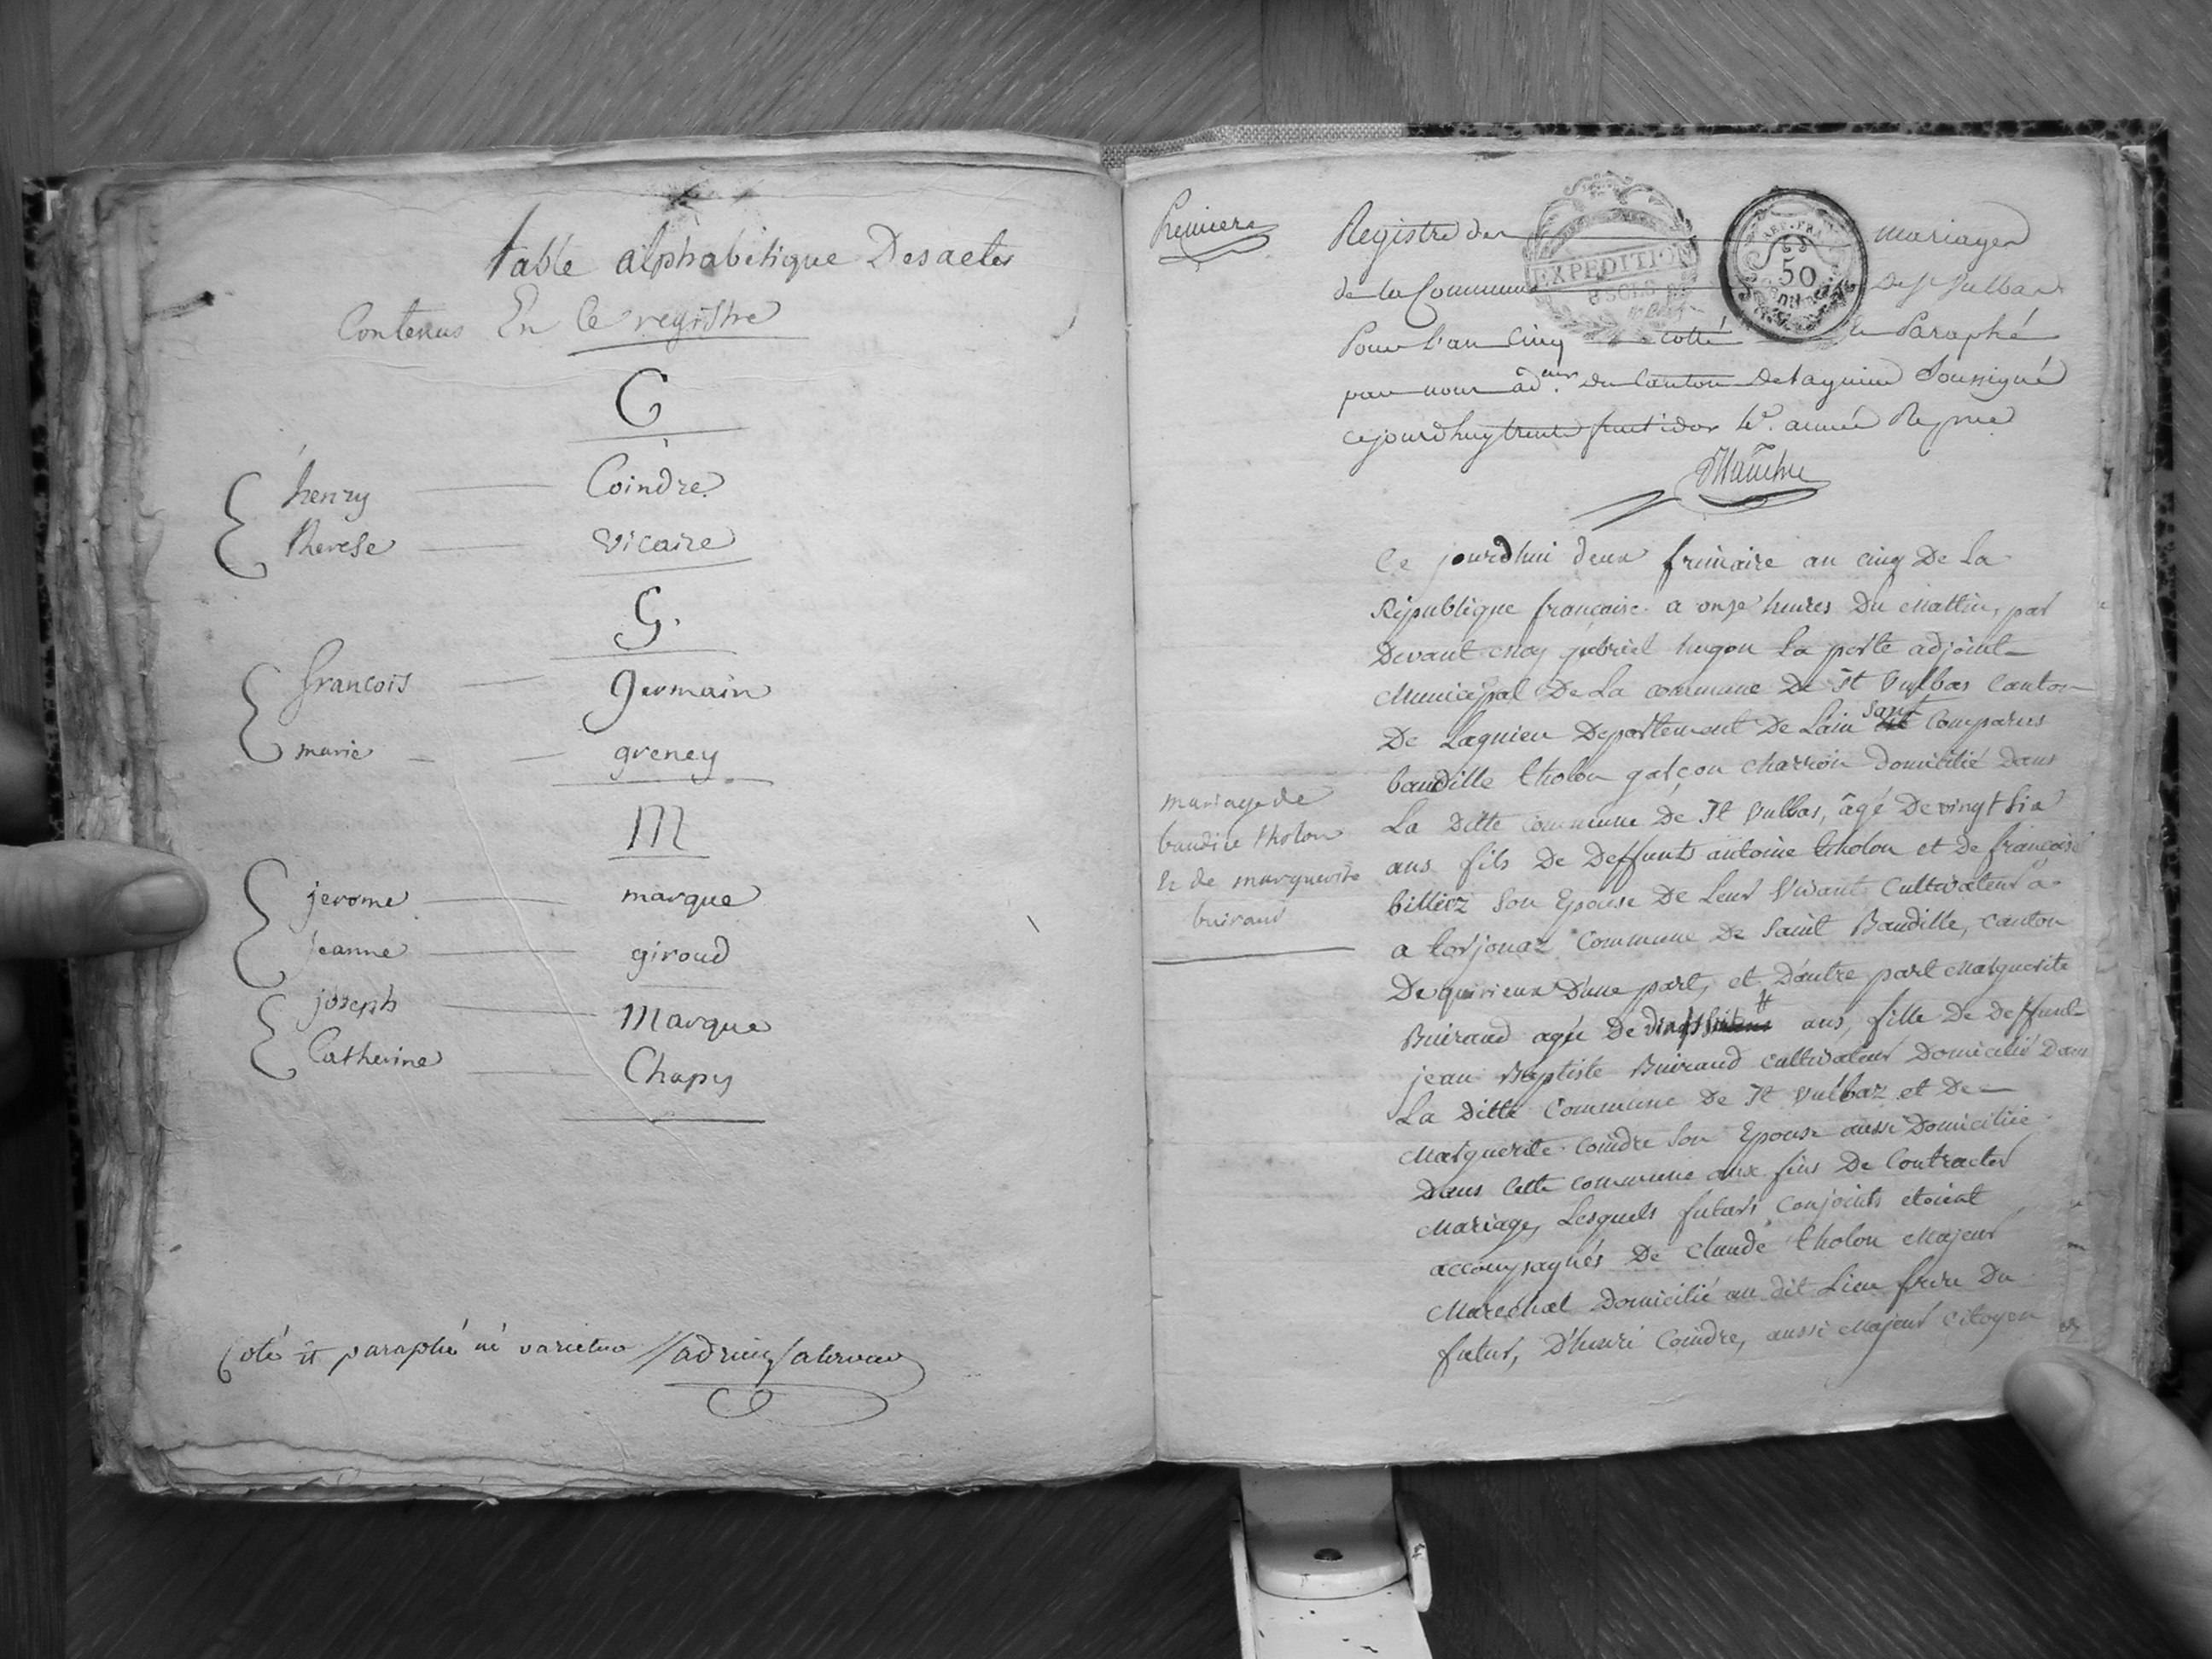 table alphabétique Des actes
Contenus En Ce registre
C
henry Coindre
therese vicaire
G.
francois germain
marie greney
M
jerome marque
jeanne giroud
joseph Marque
Catherine Chapuy
Coté et paraphé né varietur
Premiere
Registre des mariages
de la Commune De St Vulbas
EXPEDITION
8 SOLS
50
Pour l'an Cinq cotté et Paraphé
par nous adeur. du Canton De Lagnieu Soussigné
cejourdhuy trente fructidor 4e. année Repne
Ce jourdhui deux frimaire an cinq De La
République francaise a onze heures Du Mattin, par
Devant Moy gabriel hugon La porte adjoint
Municipal De La commune De St Vulbas Canton
De Lagnieu Departement De Lain sont Comparus
baudille tholon garçon charron Domicilié Dans
La Ditte commune De St Vulbas, âgé De vingt Six
ans fils De Deffunts antoine tholon et De francoise
billiez Son Epouse De Leur Vivant Cultivateurs
a torjonaz Commune De Saint Baudille, Canton
De quirieux D'une part, et D'autre part Marguerite
Buiraud agée De vingt ans, fille De Deffunt
jean Baptiste Buiraud cultivateur Domicilié Dans
La Ditte Commune De St Vulbaz et De
Marguerite Coindre Son Epouse aussi Domiciliée
Dans Cette commune aux fins De Contracter
Mariage, Lesquels futurs Conjoints etoient
accompagnés De Claude tholon Majeur
Marechal Domicilié au dit Lieu frere Du
futur, D'henri Coindre, aussi Majeur Citoyen
mariage de
baudile tholon
et de marguerite
buiraud